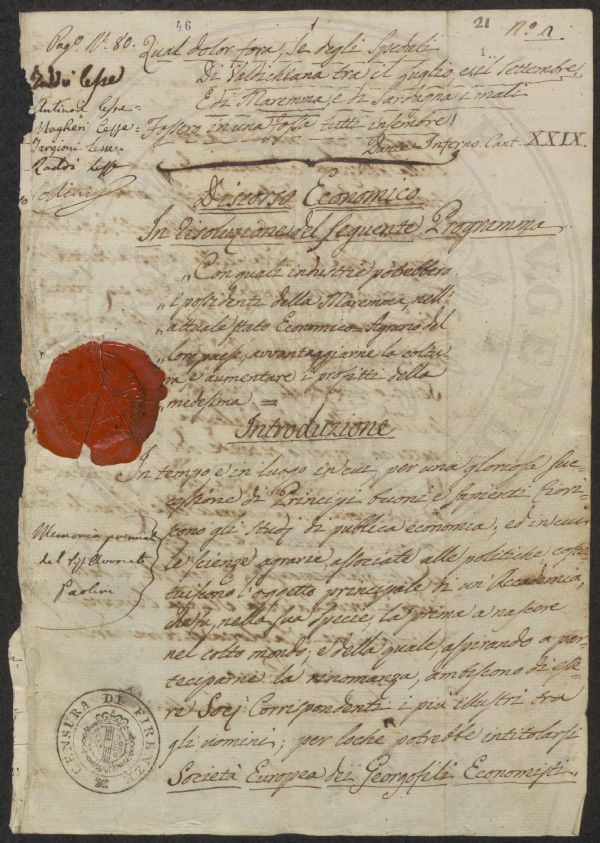 46
21
N.º 2
1
Pag.e N.º 80.
Qual dolor fora, se degli Spedali
Di Valdichiana tra il Luglio, e il settembre,
E di Maremma, e di Sardigna i mali
Fossero in una fossa tutti insembre!
Dante Inferno. Cant. XXIX.
Lesse
Antinori Lesse =
Magheri Lesse =
Targioni Lesse =
Raddi Lesse
Discorso Economico
In risoluzione del seguente Programma
„ Con quali industrie potrebbero
„ i possidenti della Maremma, nell'
„ attuale stato Economico-Agrario del
„ loro paese, avvantaggiarne la coltu-
ra, e aumentare i profitti della
„ medesima. =
Introduzione
In tempo e in luogo in cui per una gloriosa suc-
cessione di Principi buoni e sapienti fiori-
scono gli studj di publica economia; ed in cui
le scienze agrarie associate alle politiche costi-
tuiscono l'oggetto principale di un'Accademia,
che fu, nella sua specie, la prima a nascere
nel colto mondo; e della quale, aspirando a par-
teciparne la rinomanza, ambiscono di esse-
re Socj Corrispondenti i più illustri tra
gli uomini; per loche potrebbe intitolarsi
Società Europea dei Georgofili Economisti.
Memoria premiata
del Sig. Avvocato
Paolini
CENSURA DI FIRENZE